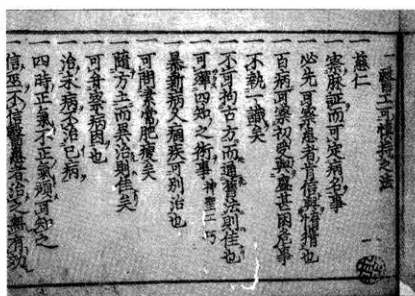 醫工可慎持之法
一 慈仁
一 察脉証而可定病名事
一 必先可察患者肯信與悟措也
一 百病可察初發與盛甚困危事
一 不執一識矣
一 不可拘古方而通舊法則佳也
一 可彈四知之術事 神聖工巧
一 暴動病久痼疾可別治也
一 可問素常肥瘦矣
一 隨方土而異治則佳矣
一 可看察病因也
一 治未病不治已病
一 四時正氣不正氣須可知之
一 信巫不信醫患者治之無有効